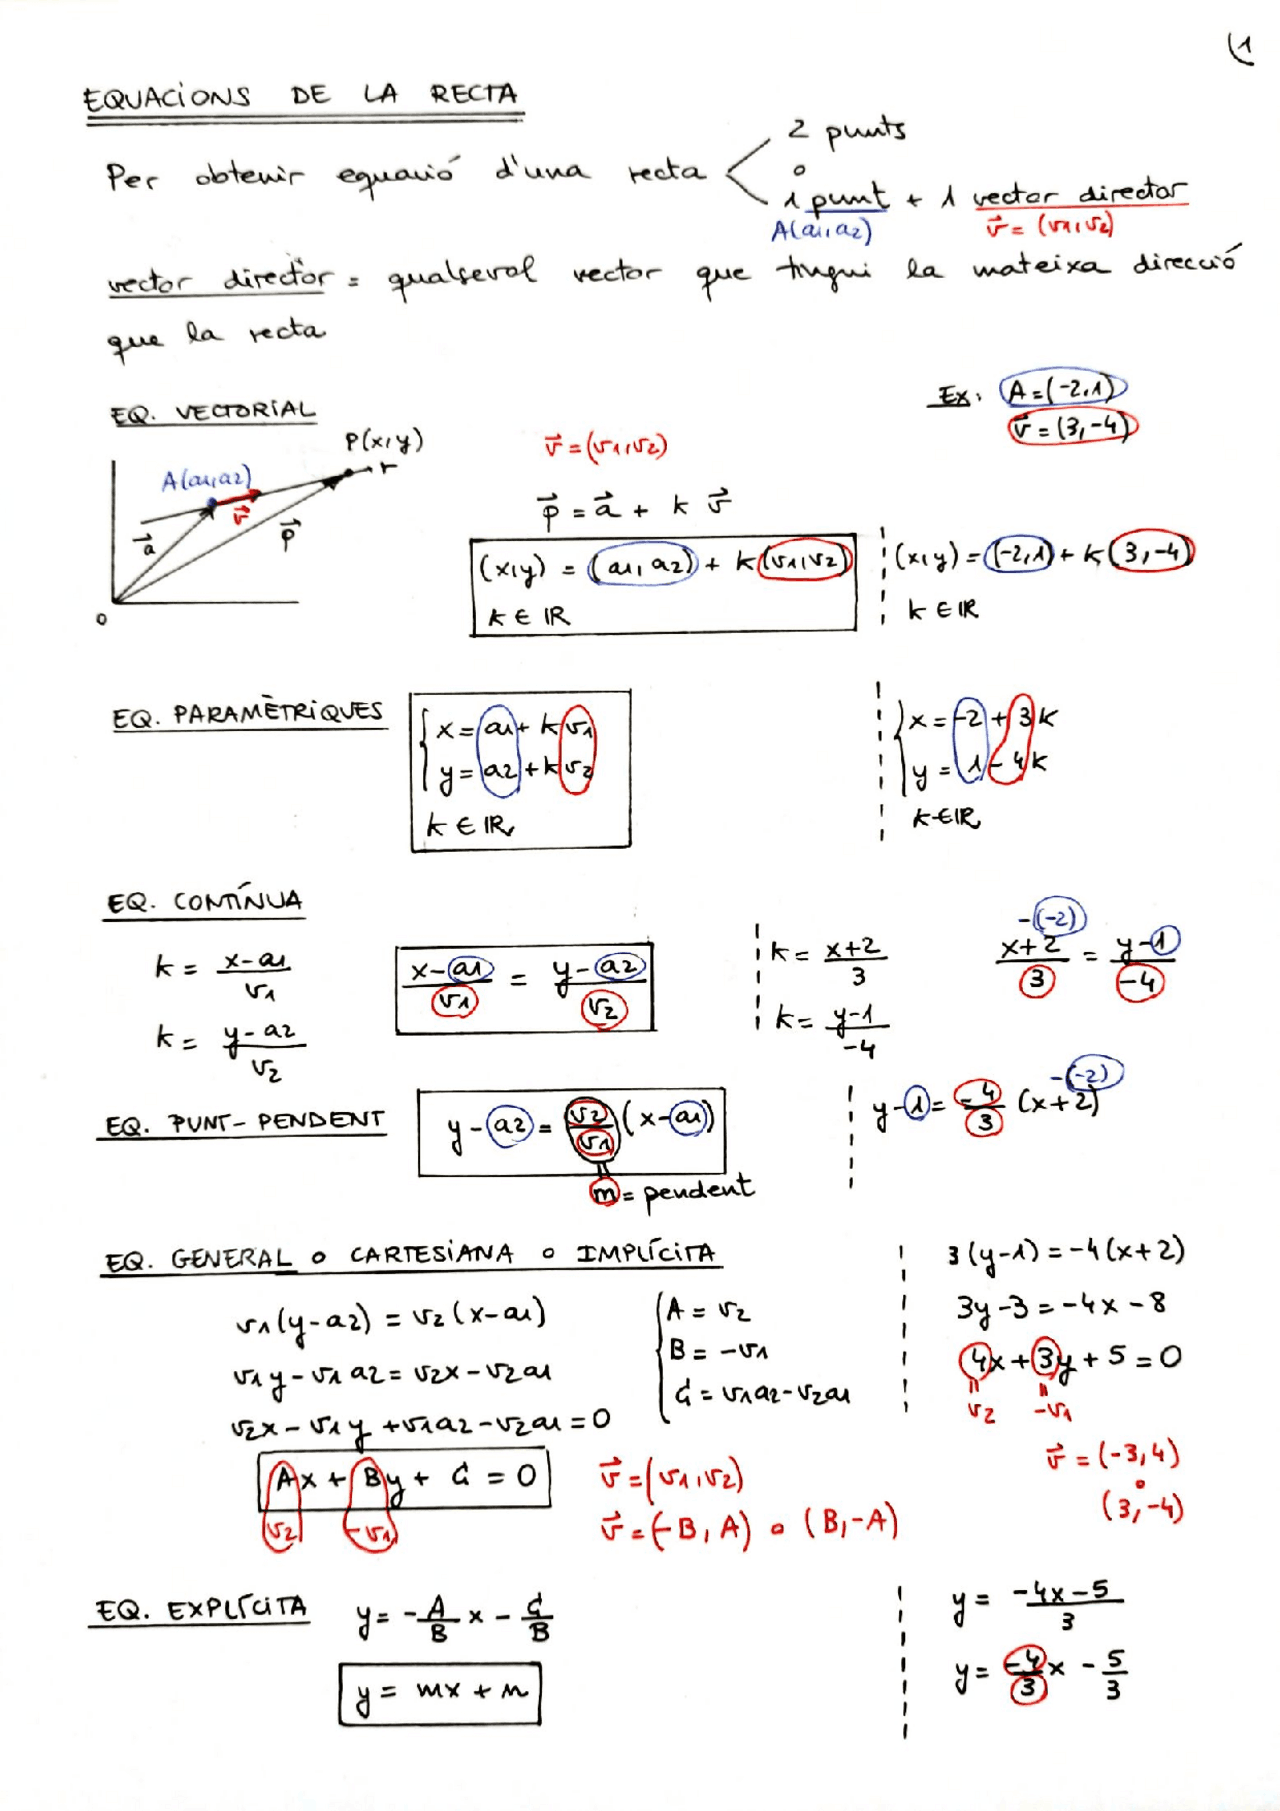 (1
EQUACIONS DE LA RECTA
Per obtenir equació d'una recta < 2 punts
o
1 punt + 1 vector director
A(a1,a2) v⃗ = (v1,v2)
vector director = qualsevol vector que tingui la mateixa direcció
que la recta
EQ. VECTORIAL
Ex: A=(-2,1)
v⃗ = (3,-4)
P(x,y)
r
A(a1,a2)
v⃗
a⃗
p⃗
O
v⃗ = (v1,v2)
p⃗ = a⃗ + k v⃗
(x,y) = (a1,a2) + k(v1,v2)
k ∈ IR
(x,y) = (-2,1) + k(3,-4)
k ∈ IR
EQ. PARAMÈTRIQUES
x = a1 + k v1
y = a2 + k v2
k ∈ IR
x = -2 + 3k
y = 1 - 4k
k ∈ IR
EQ. CONTÍNUA
k = (x-a1)/v1
k = (y-a2)/v2
(x-a1)/v1 = (y-a2)/v2
k = (x+2)/3
k = (y-1)/-4
-(-2)
(x+2)/3 = (y-1)/-4
EQ. PUNT-PENDENT
y-a2 = v2/v1 (x-a1)
m = pendent
-(-2)
y-1 = -4/3 (x+2)
EQ. GENERAL o CARTESIANA o IMPLÍCITA
v1(y-a2) = v2(x-a1)
v1y - v1a2 = v2x - v2a1
v2x - v1y + v1a2 - v2a1 = 0
A = v2
B = -v1
C = v1a2 - v2a1
Ax + By + C = 0
v2 -v1
v⃗ = (v1,v2)
v⃗ = (-B,A) o (B,-A)
3(y-1) = -4(x+2)
3y-3 = -4x-8
4x + 3y + 5 = 0
= =
v2 -v1
v⃗ = (-3,4)
o
(3,-4)
EQ. EXPLÍCITA
y = -A/B x - C/B
y = mx + n
y = (-4x-5)/3
y = -4/3 x - 5/3